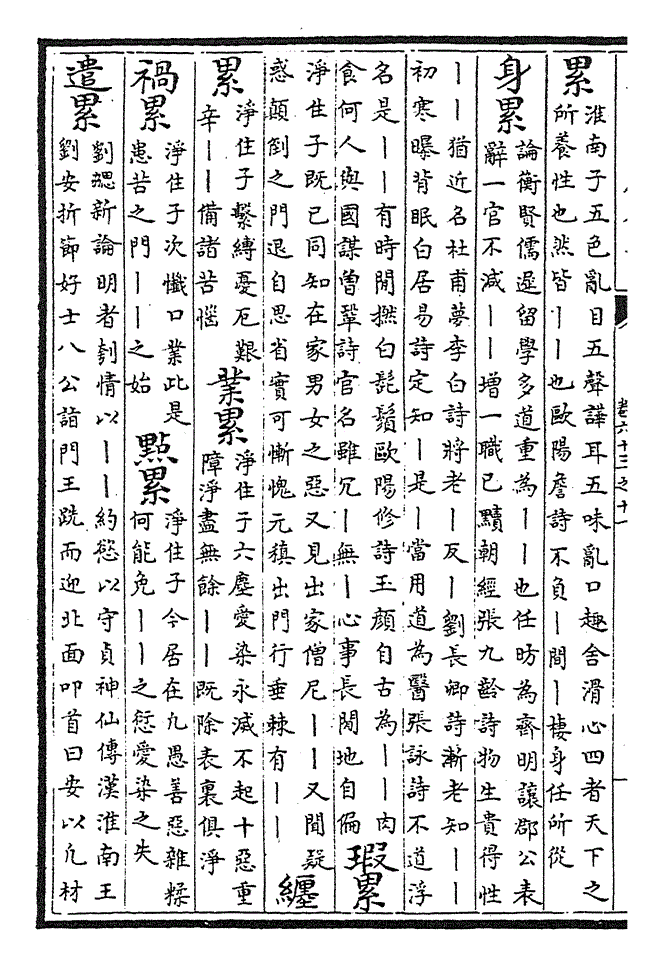 卷六十三之十一
累
淮南子五色亂目五聲譁耳五味亂口趣舍滑心四者天下之
所養性也然皆｜｜也歐陽詹詩不負｜間｜棲身任所從
身累
論衡賢儒遲留學多道重為｜｜也任昉為齊明讓郡公表
辭一官不減｜｜增一職已黷朝經張九齡詩物生貴得性
｜｜猶近名杜甫夢李白詩將老｜反｜劉長卿詩漸老知｜｜
初寒曝背眠白居易詩定知｜是｜當用道為醫張詠詩不道浮
名是｜｜有時閒撚白髭鬚歐陽修詩玉顔自古為｜｜肉
食何人與國謀曾鞏詩官名雖冗｜無｜心事長閒地自偏
瑕累
淨住子既已同知在家男女之惡又見出家僧尼｜｜又聞疑
惑顛倒之門退自思省實可慚愧元稹出門行垂棘有｜｜
纒
累
淨住子繫縛憂厄艱
辛｜｜備諸苦惱
業累
淨住子六塵愛染永滅不起十惡重
障淨盡無餘｜｜既除表裏俱淨
禍累
淨住子次懺口業此是
患苦之門｜｜之始
點累
淨住子今居在凡愚善惡雜糅
何能免｜｜之愆愛染之失
遣累
劉勰新論明者刳情以｜｜約慾以守貞神仙傳漢淮南王
劉安折節好士八公詣門王跣而迎北面叩首曰安以凡材